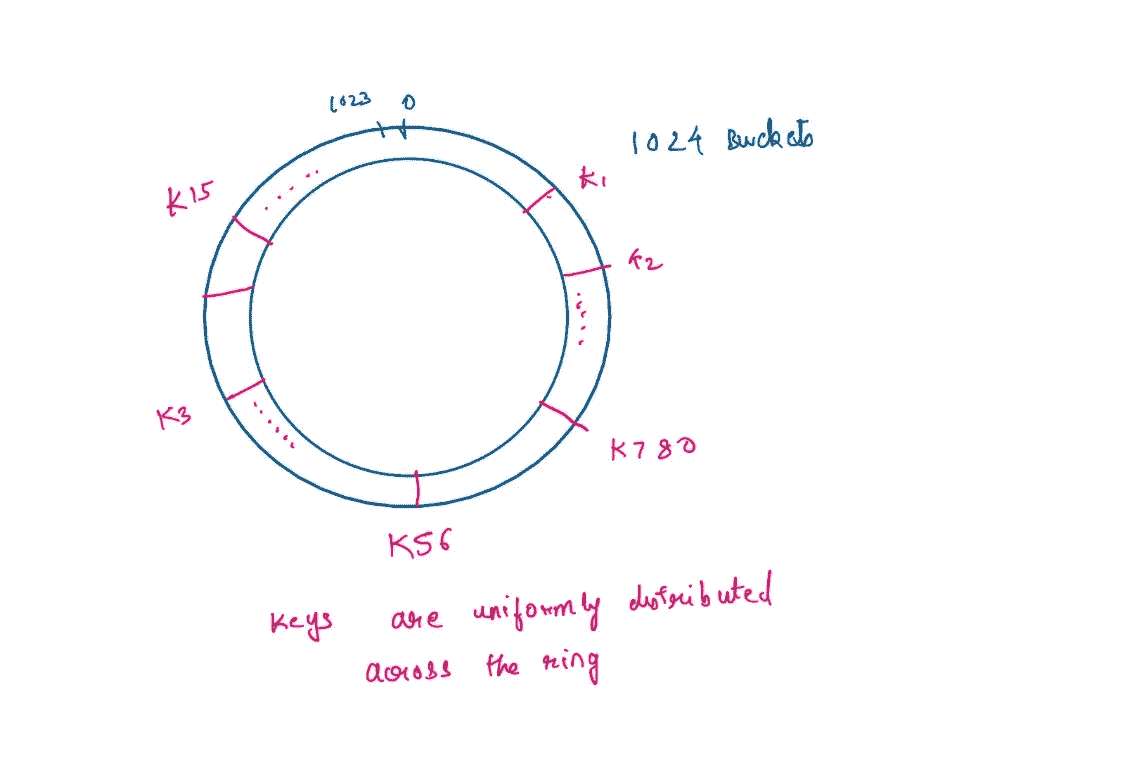 1023 0
1024 Buckets
K1
K15
K2
K3
K780
K56
Keys are uniformly distributed
across the ring